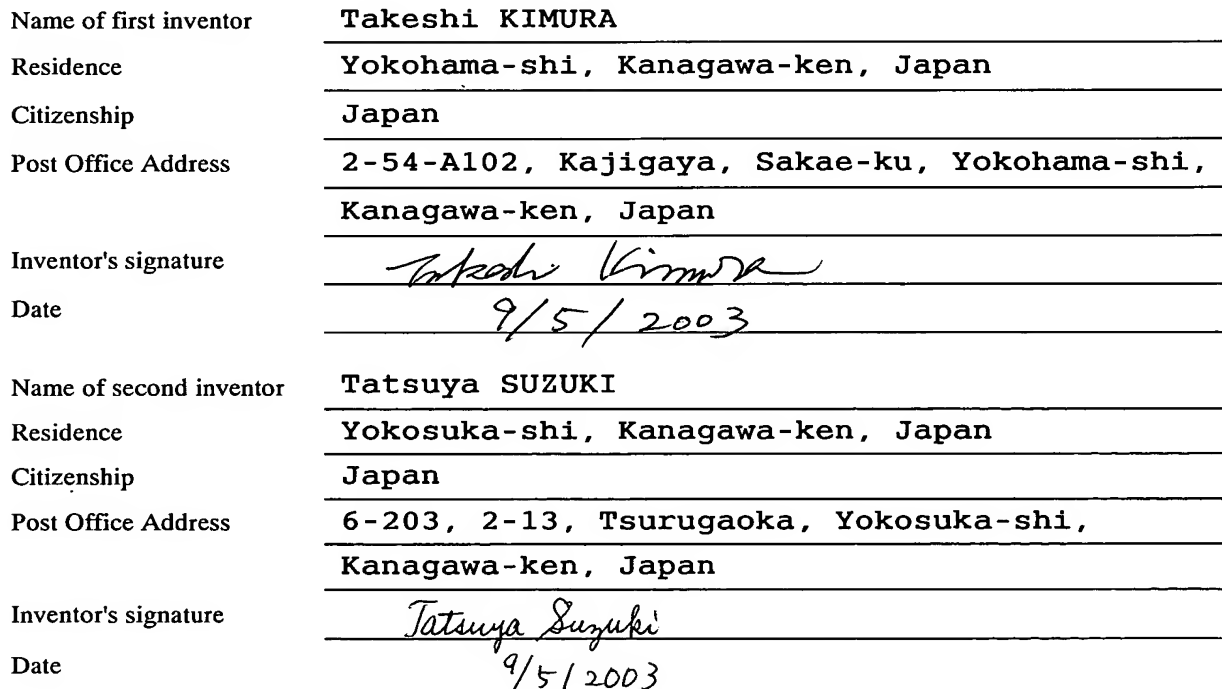 Name of first inventor Takeshi KIMURA
Residence Yokohama-shi, Kanagawa-ken, Japan
Citizenship Japan
Post Office Address 2-54-A102, Kajigaya, Sakae-ku, Yokohama-shi,
Kanagawa-ken, Japan
Inventor's signature Takeshi Kimura
Date 9/5/2003
Name of second inventor Tatsuya SUZUKI
Residence Yokosuka-shi, Kanagawa-ken, Japan
Citizenship Japan
Post Office Address 6-203, 2-13, Tsurugaoka, Yokosuka-shi,
Kanagawa-ken, Japan
Inventor's signature Tatsuya Suzuki
Date 9/5/2003